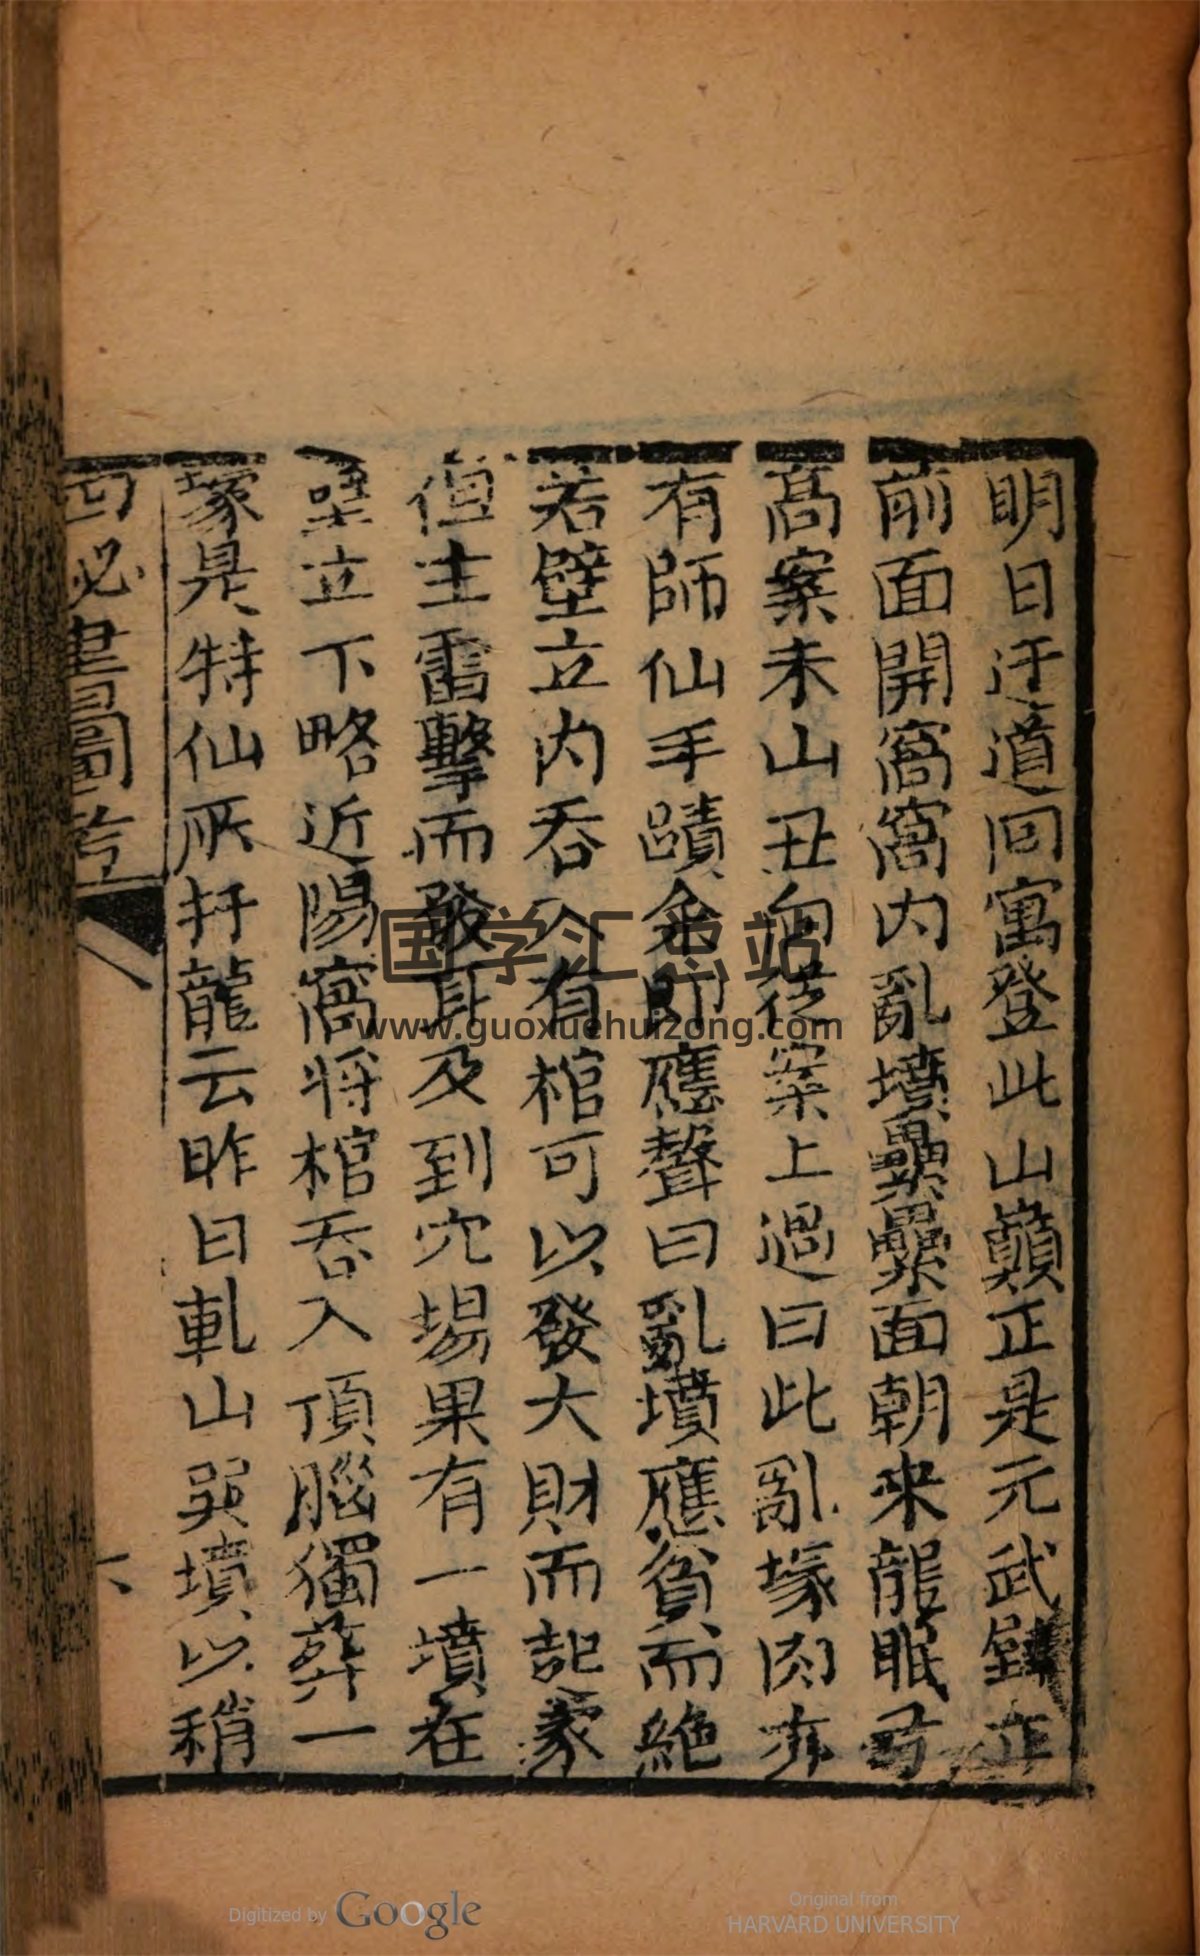 明日迂道回寓登此山巔正是元武歸正
前面開窩窩内亂墳纍纍面朝来龍眠弓
高案未山丑向從案上過曰此亂塚内亦
有師仙手蹟余即應聲曰亂墳應貧而絶
若壁立内吞入有棺可以發大財而起家
但主雷擊而發耳及到穴場果有一墳在
壁立下略近陽窩将棺吞入頂腦獨葬一
塚是特仙所扦龍云昨日乹山巽墳以稍
四必書圖
六
国学汇总站
www.guoxuehuizong.com
Digitized by Google
Original from
HARVARD UNIVERSITY